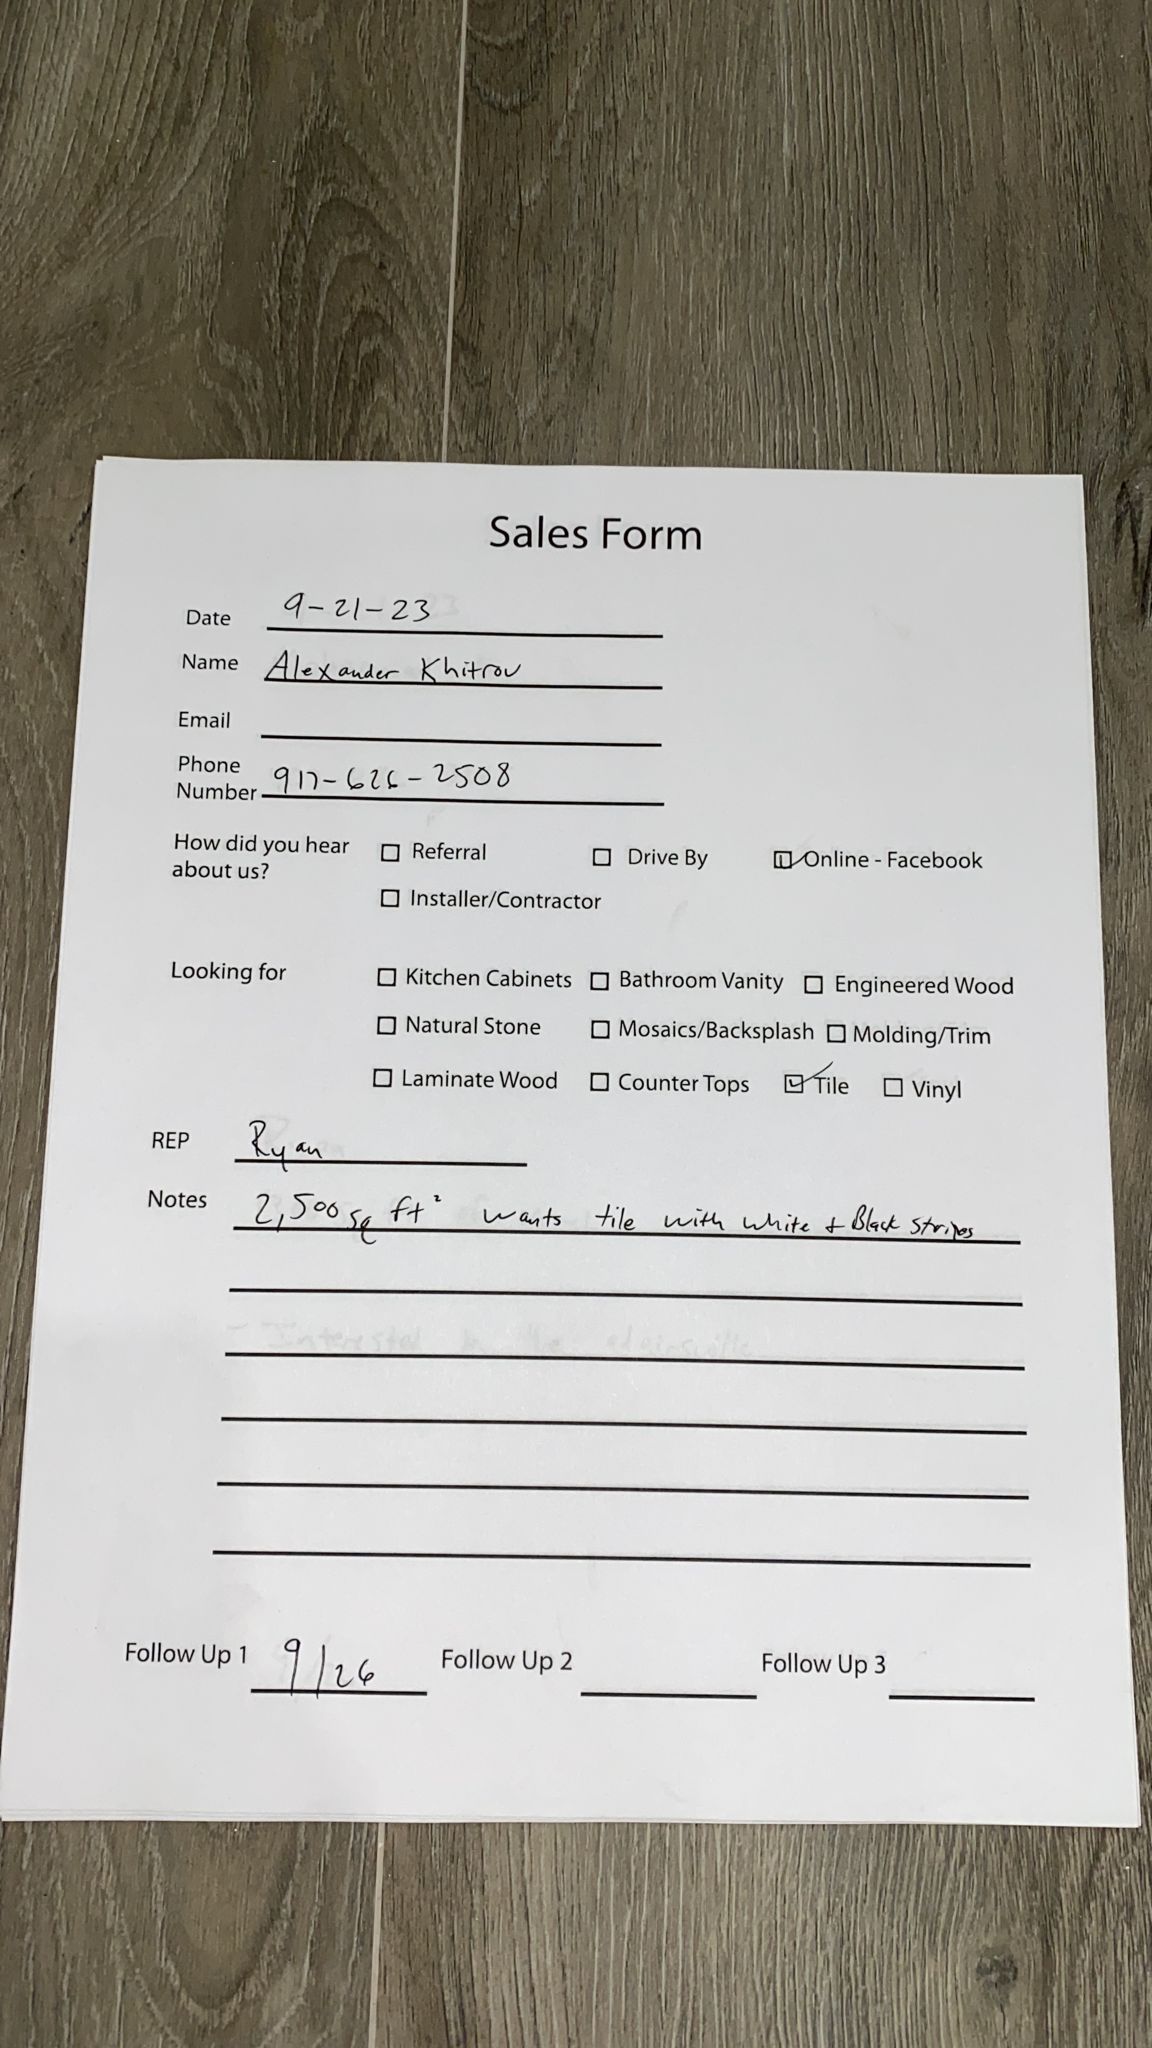 Sales Form
Date 9-21-23
Name Alexander Khitrov
Email
Phone
Number 917-626-2508
How did you hear Referral Drive By Online - Facebook
about us?
Installer/Contractor
Looking for Kitchen Cabinets Bathroom Vanity Engineered Wood
Natural Stone Mosaics/Backsplash Molding/Trim
Laminate Wood Counter Tops Tile Vinyl
REP Ryan
Notes 2,500 sq ft² wants tile with white + Black stripes
- Interested in the
Follow Up 1 9/26 Follow Up 2 Follow Up 3